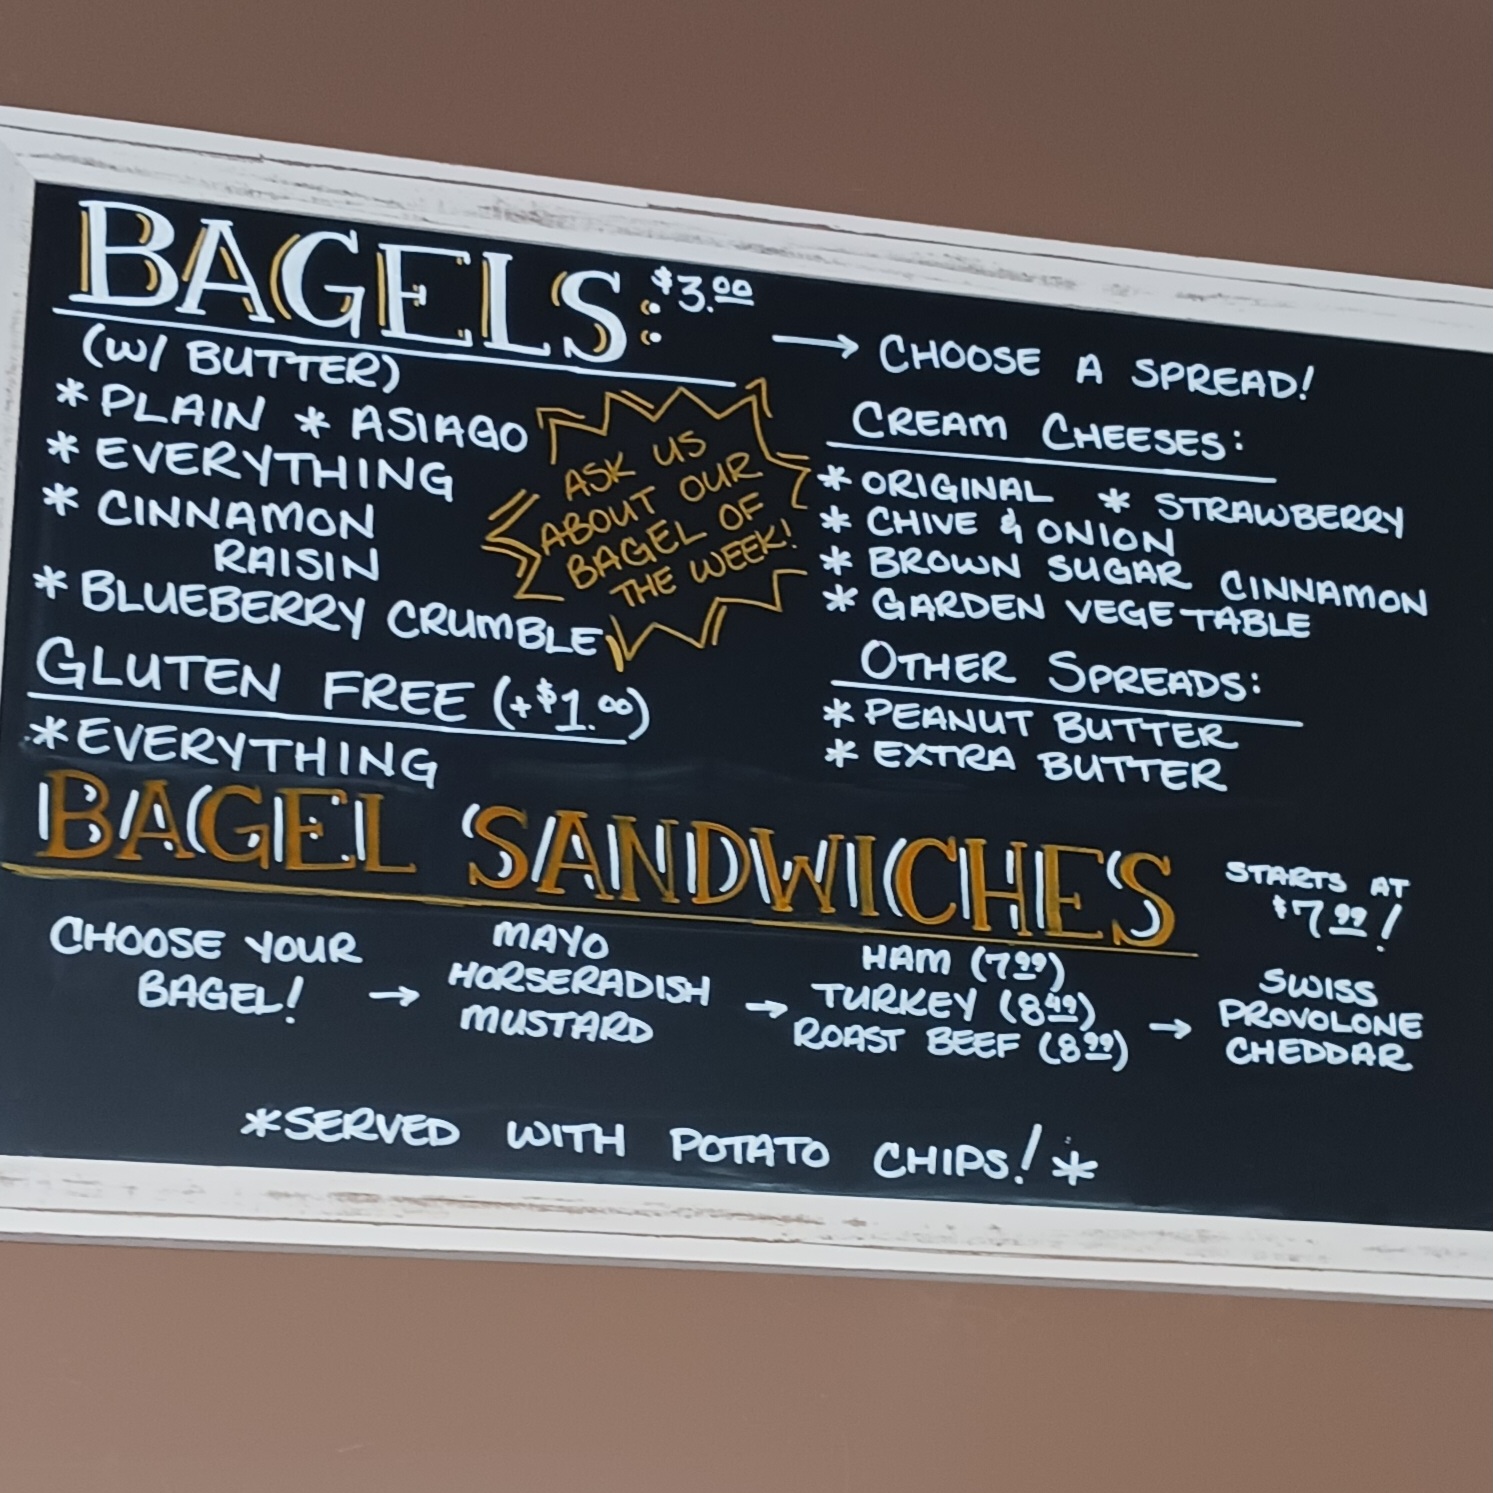 BAGELS: $3.00
(W/ BUTTER)
* PLAIN * ASIAGO
* EVERYTHING
* CINNAMON
RAISIN
* BLUEBERRY CRUMBLE
GLUTEN FREE (+$1.00)
* EVERYTHING
ASK US
ABOUT OUR
BAGEL OF
THE WEEK!
→ CHOOSE A SPREAD!
CREAM CHEESES:
* ORIGINAL * STRAWBERRY
* CHIVE & ONION
* BROWN SUGAR CINNAMON
* GARDEN VEGETABLE
OTHER SPREADS:
* PEANUT BUTTER
* EXTRA BUTTER
BAGEL SANDWICHES
STARTS AT
$7.99!
CHOOSE YOUR
BAGEL! →
MAYO
HORSERADISH
MUSTARD →
HAM (7.99)
TURKEY (8.49)
ROAST BEEF (8.99) →
SWISS
PROVOLONE
CHEDDAR
*SERVED WITH POTATO CHIPS!*